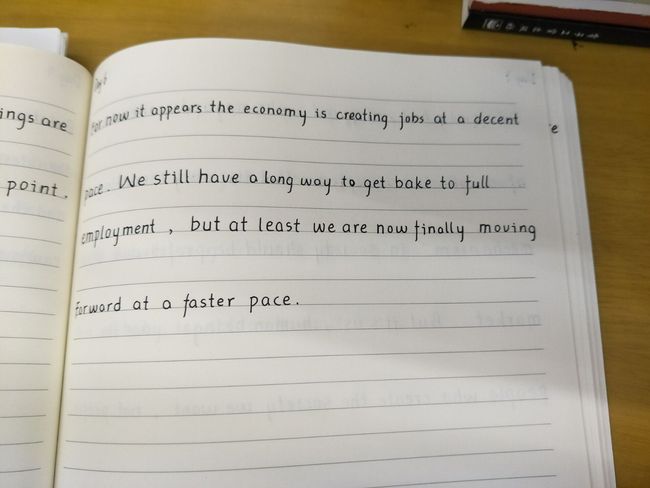 ings are
point.
Day 6
For now it appears the economy is creating jobs at a decent
pace. We still have a long way to get bake to full
employment, but at least we are now finally moving
forward at a faster pace.
e